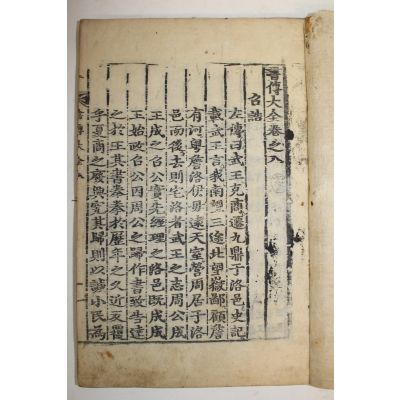 書傳大全卷之八
召誥
左傳曰武王克商遷九鼎于洛邑史記
載武王言我南望三途北望嶽鄙顧詹
有河粤詹洛伊毋遠天室營周居于洛
邑而後去則宅洛者武王之志周公成
王成之召公實先經理之洛邑既成成
王始政召公因周公之歸作書致告達
之於王其書拳拳於歷年之久近反覆
乎夏商之廢興究其歸則以諴小民爲